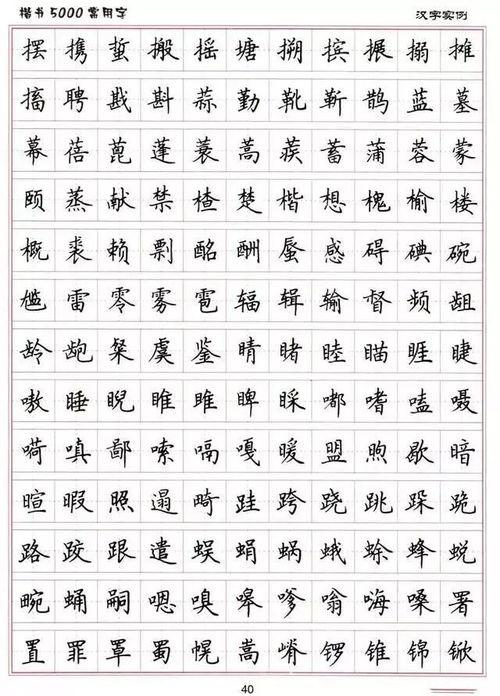 楷书5000常用字 汉字实例
摆携蜇搬摇搪搠摈搌搦摊
搐聘戡斟蒜勤靴靳鹊蓝墓
幕蓓蓖蓬蓑蒿蒺蓄蒲蓉蒙
颐蒸献禁楂楚楷想槐榆楼
概裘赖剽酩酬蜃感碍碘碗
尴雷零雾雹辐辑输督频龃
龄龅粲虞鉴睛睹睦瞄睚睫
嗷睡睨睢雎睥睬嘟嗜嗑嗫
嗬嗔鄙嗦嗝嘎暖盟煦歇暗
暄暇照遢畸跬跨跷跳跺跪
路跤跟遣蜈蜎蜗蛾蜍蜂蜕
畹蛹嗣嗯嗅嗥嗲嗡嗨嗓署
置罪罩蜀幌嵩嵴锣锥锦锨
40